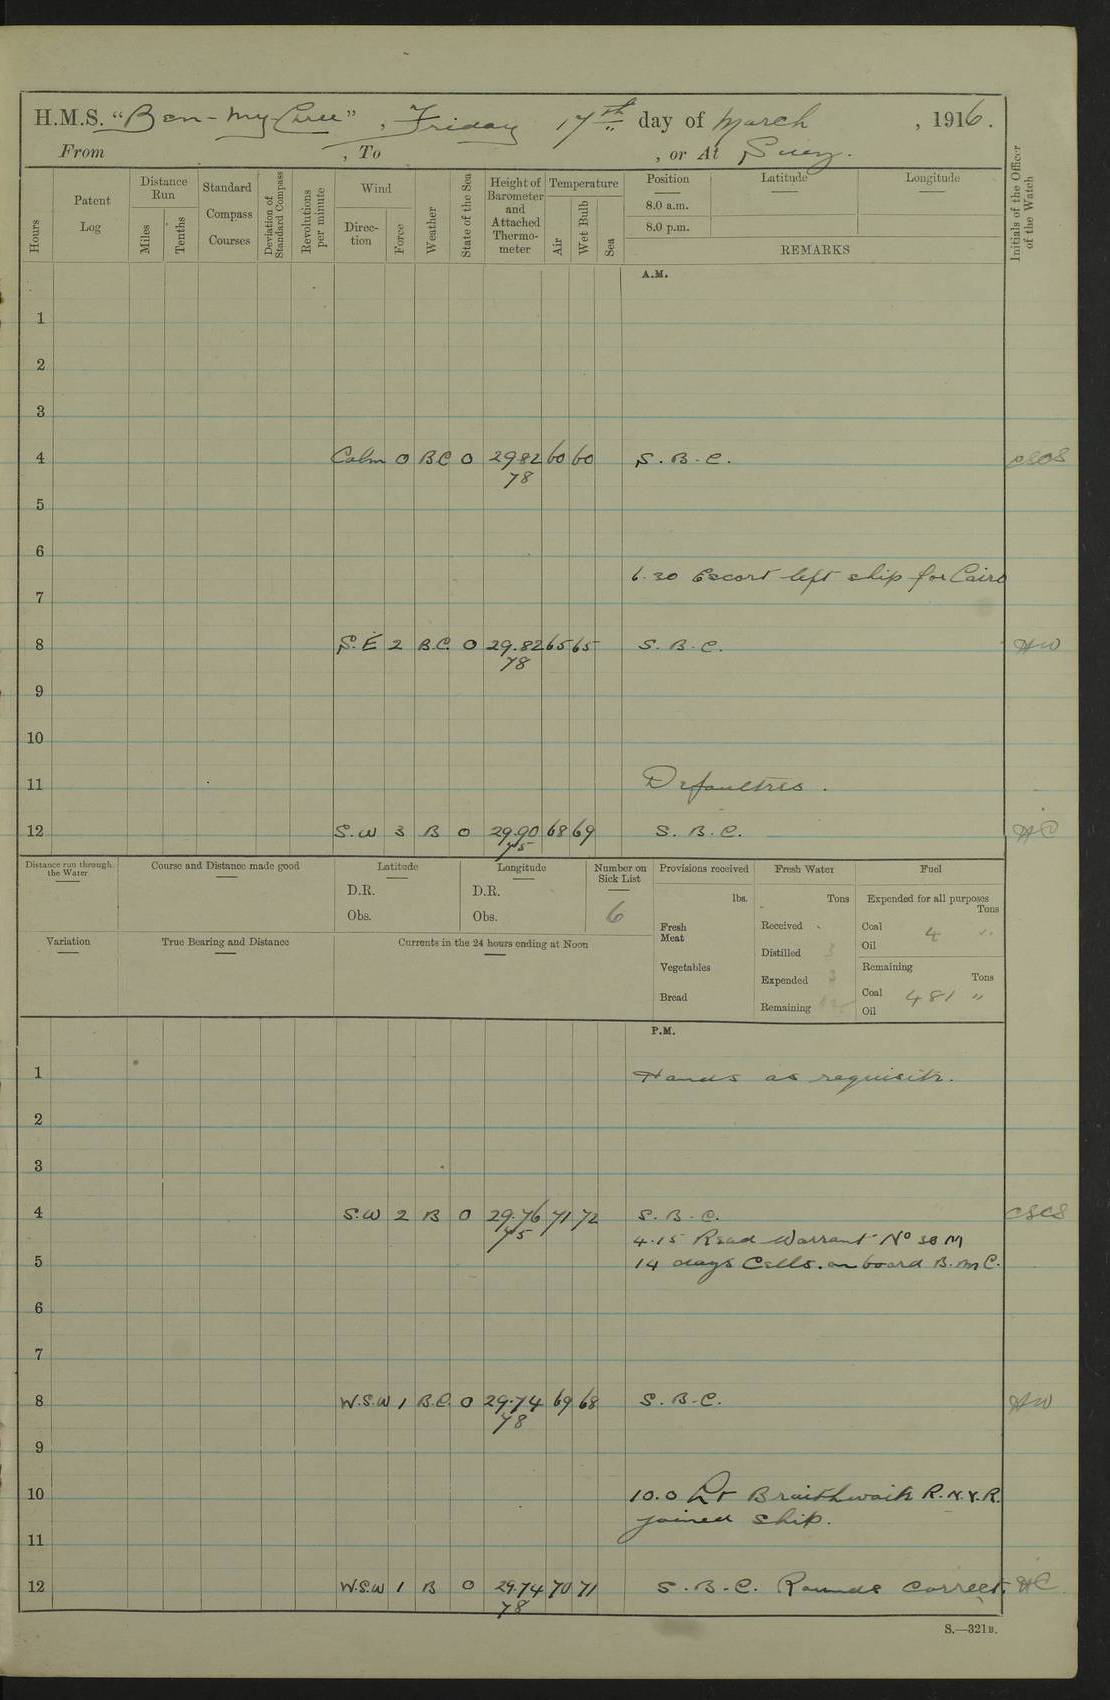 H.M.S. "Ben-my-Chree", Friday 17th day of March, 1916.
From , To , or At Suez.
Hours
Patent Log
Distance Run
Miles
Tenths
Standard Compass Courses
Deviation of Standard Compass
Revolutions per minute
Wind
Direc-tion
Force
Weather
State of the Sea
Height of Barometer and Attached Thermo-meter
Temperature
Air
Wet Bulb
Sea
Position
8.0 a.m.
8.0 p.m.
Latitude
Longitude
REMARKS
Initials of the Officer of the Watch
A.M.
1
2
3
4 Calm 0 BC 0 2982 60 60 S.B.C.
78
5
6
6.30 Escort left ship for Cairo
7
8 S.E 2 B.C. 0 29.82 65 65 S.B.C. HW
78
9
10
11 Defaultres.
12 S.W 3 B 0 29.90 68 69 S.B.C. HC
75
Distance run through the Water
Course and Distance made good
Latitude
D.R.
Obs.
Longitude
D.R.
Obs.
Number on Sick List
6
Provisions received
lbs.
Fresh Meat
Vegetables
Bread
Fresh Water
Tons
Received
Distilled 3
Expended 3
Remaining
Fuel
Expended for all purposes
Tons
Coal 4 "
Oil
Remaining
Tons
Coal 481 "
Oil
Variation
True Bearing and Distance
Currents in the 24 hours ending at Noon
P.M.
1 Hands as requisite.
2
3
4 S.W 2 B 0 29.76 71 72 S.B.C.
75
4.15 Read Warrant No 38 M
5 14 days Cells. on board B.M C.
6
7
8 W.S.W 1 B.C. 0 29.74 69 68 S.B.C. HW
78
9
10 10.0 Lt Braithwaite R.N.V.R.
joined ship.
11
12 W.S.W 1 B 0 29.74 70 71 S.B.C. Rounds correct. HC
78
S.—321B.